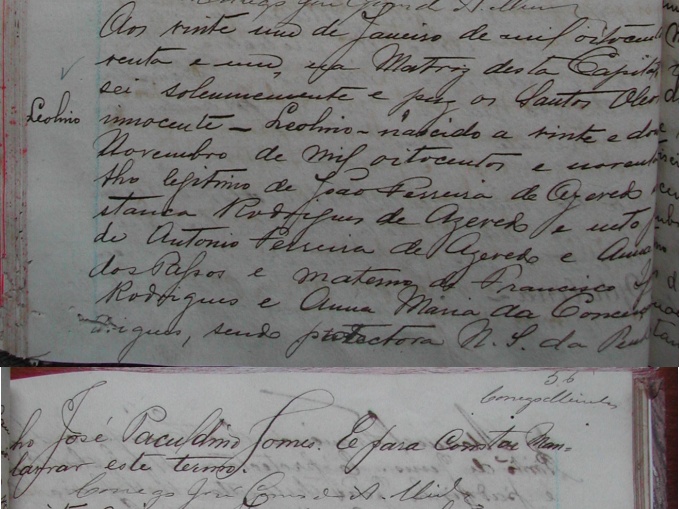 Aos vinte um de Janeiro de mil oitocen
venta e um, na Matriz desta Capital
sei solemnemente e puz os Santos Oleos
Leolino
innocente - Leolino - nascido a vinte e dois
Novembro de mil oitocentos e noventa
lho legitimo de João Ferreira de Azevedo
stanca Rodrigues de Azevedo e neto
de Antonio Ferreira de Azevedo e Anna
dos Passos e materno de Francisco
Rodrigues e Anna Maria da Concei
drigues, sendo protectora N. S. da Penh
56
Conego
ho José Paculdino Gomes. E para constar man-
lavrar este termo.
Conego José